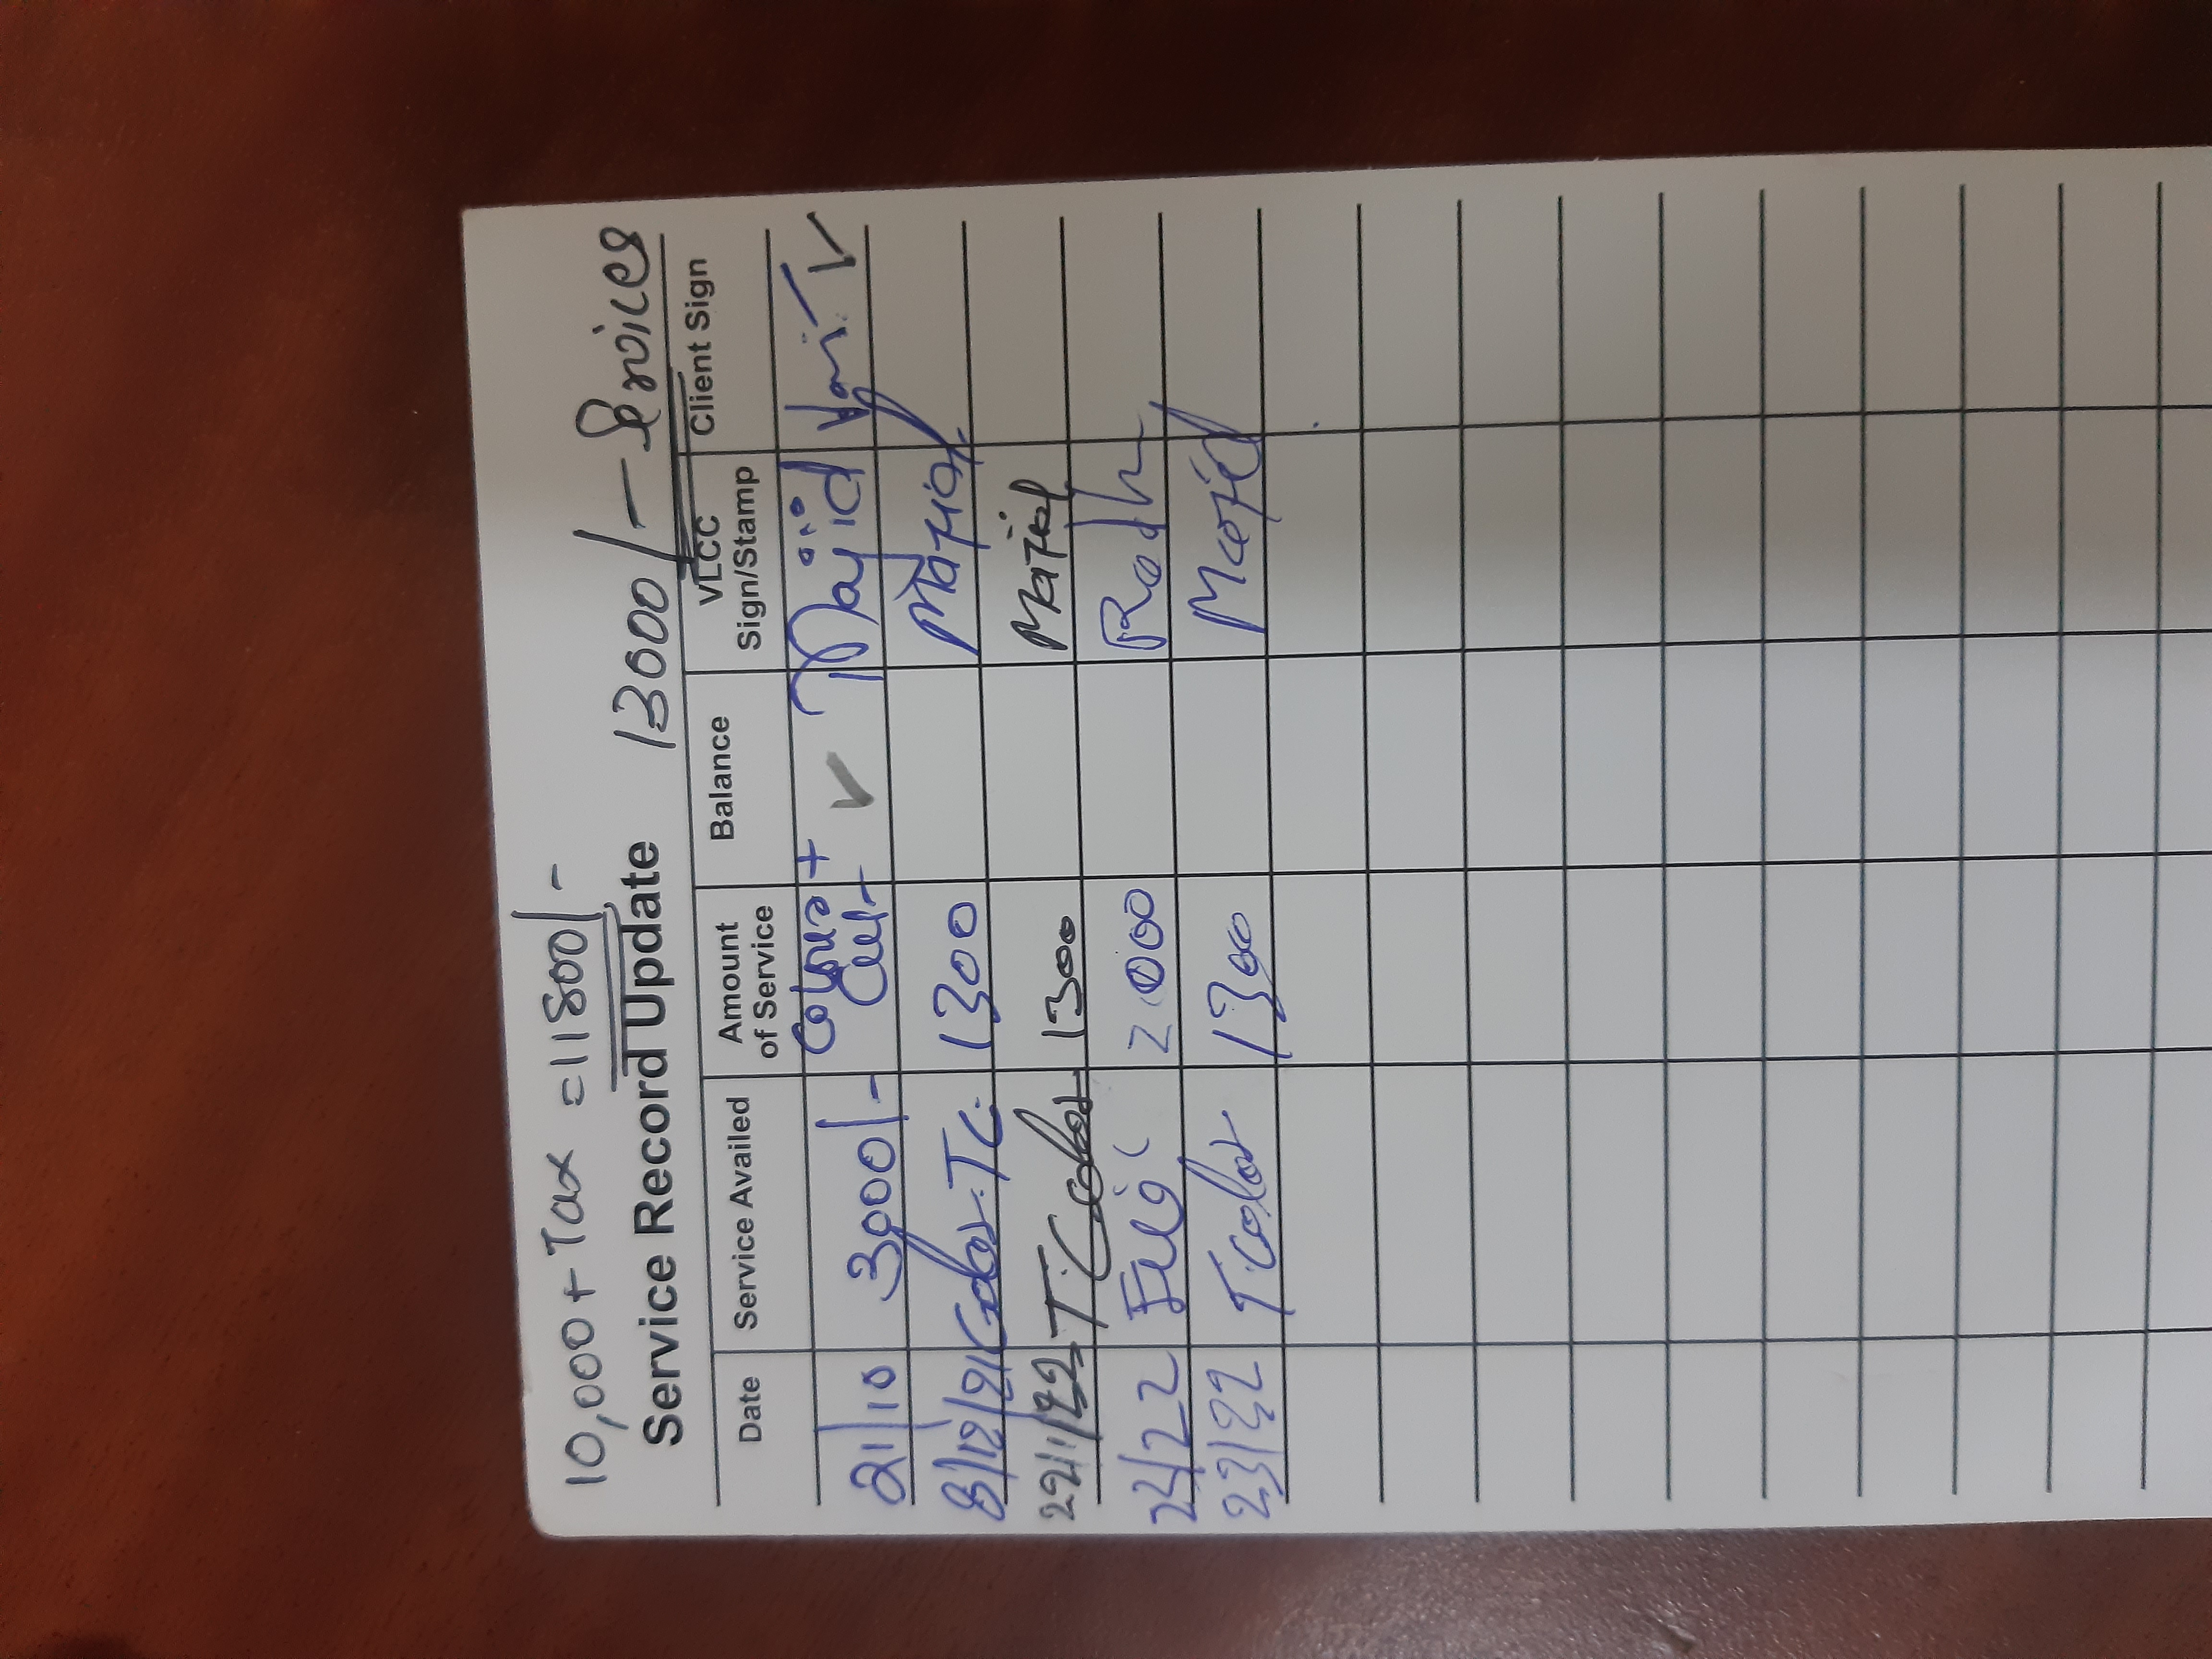 10,000 + Tax = 11800/-
Service Record Update 13000/- Services
Date Service Availed Amount of Service Balance VLCC Sign/Stamp Client Sign
21/10 3000/- Colour + Cut ✓ Majid ✓
8/12/21 Color T.C. 1300 Majid
22/1/22 T.Color 1300 Majid
2000
23/22 T.Color 1300 Majid